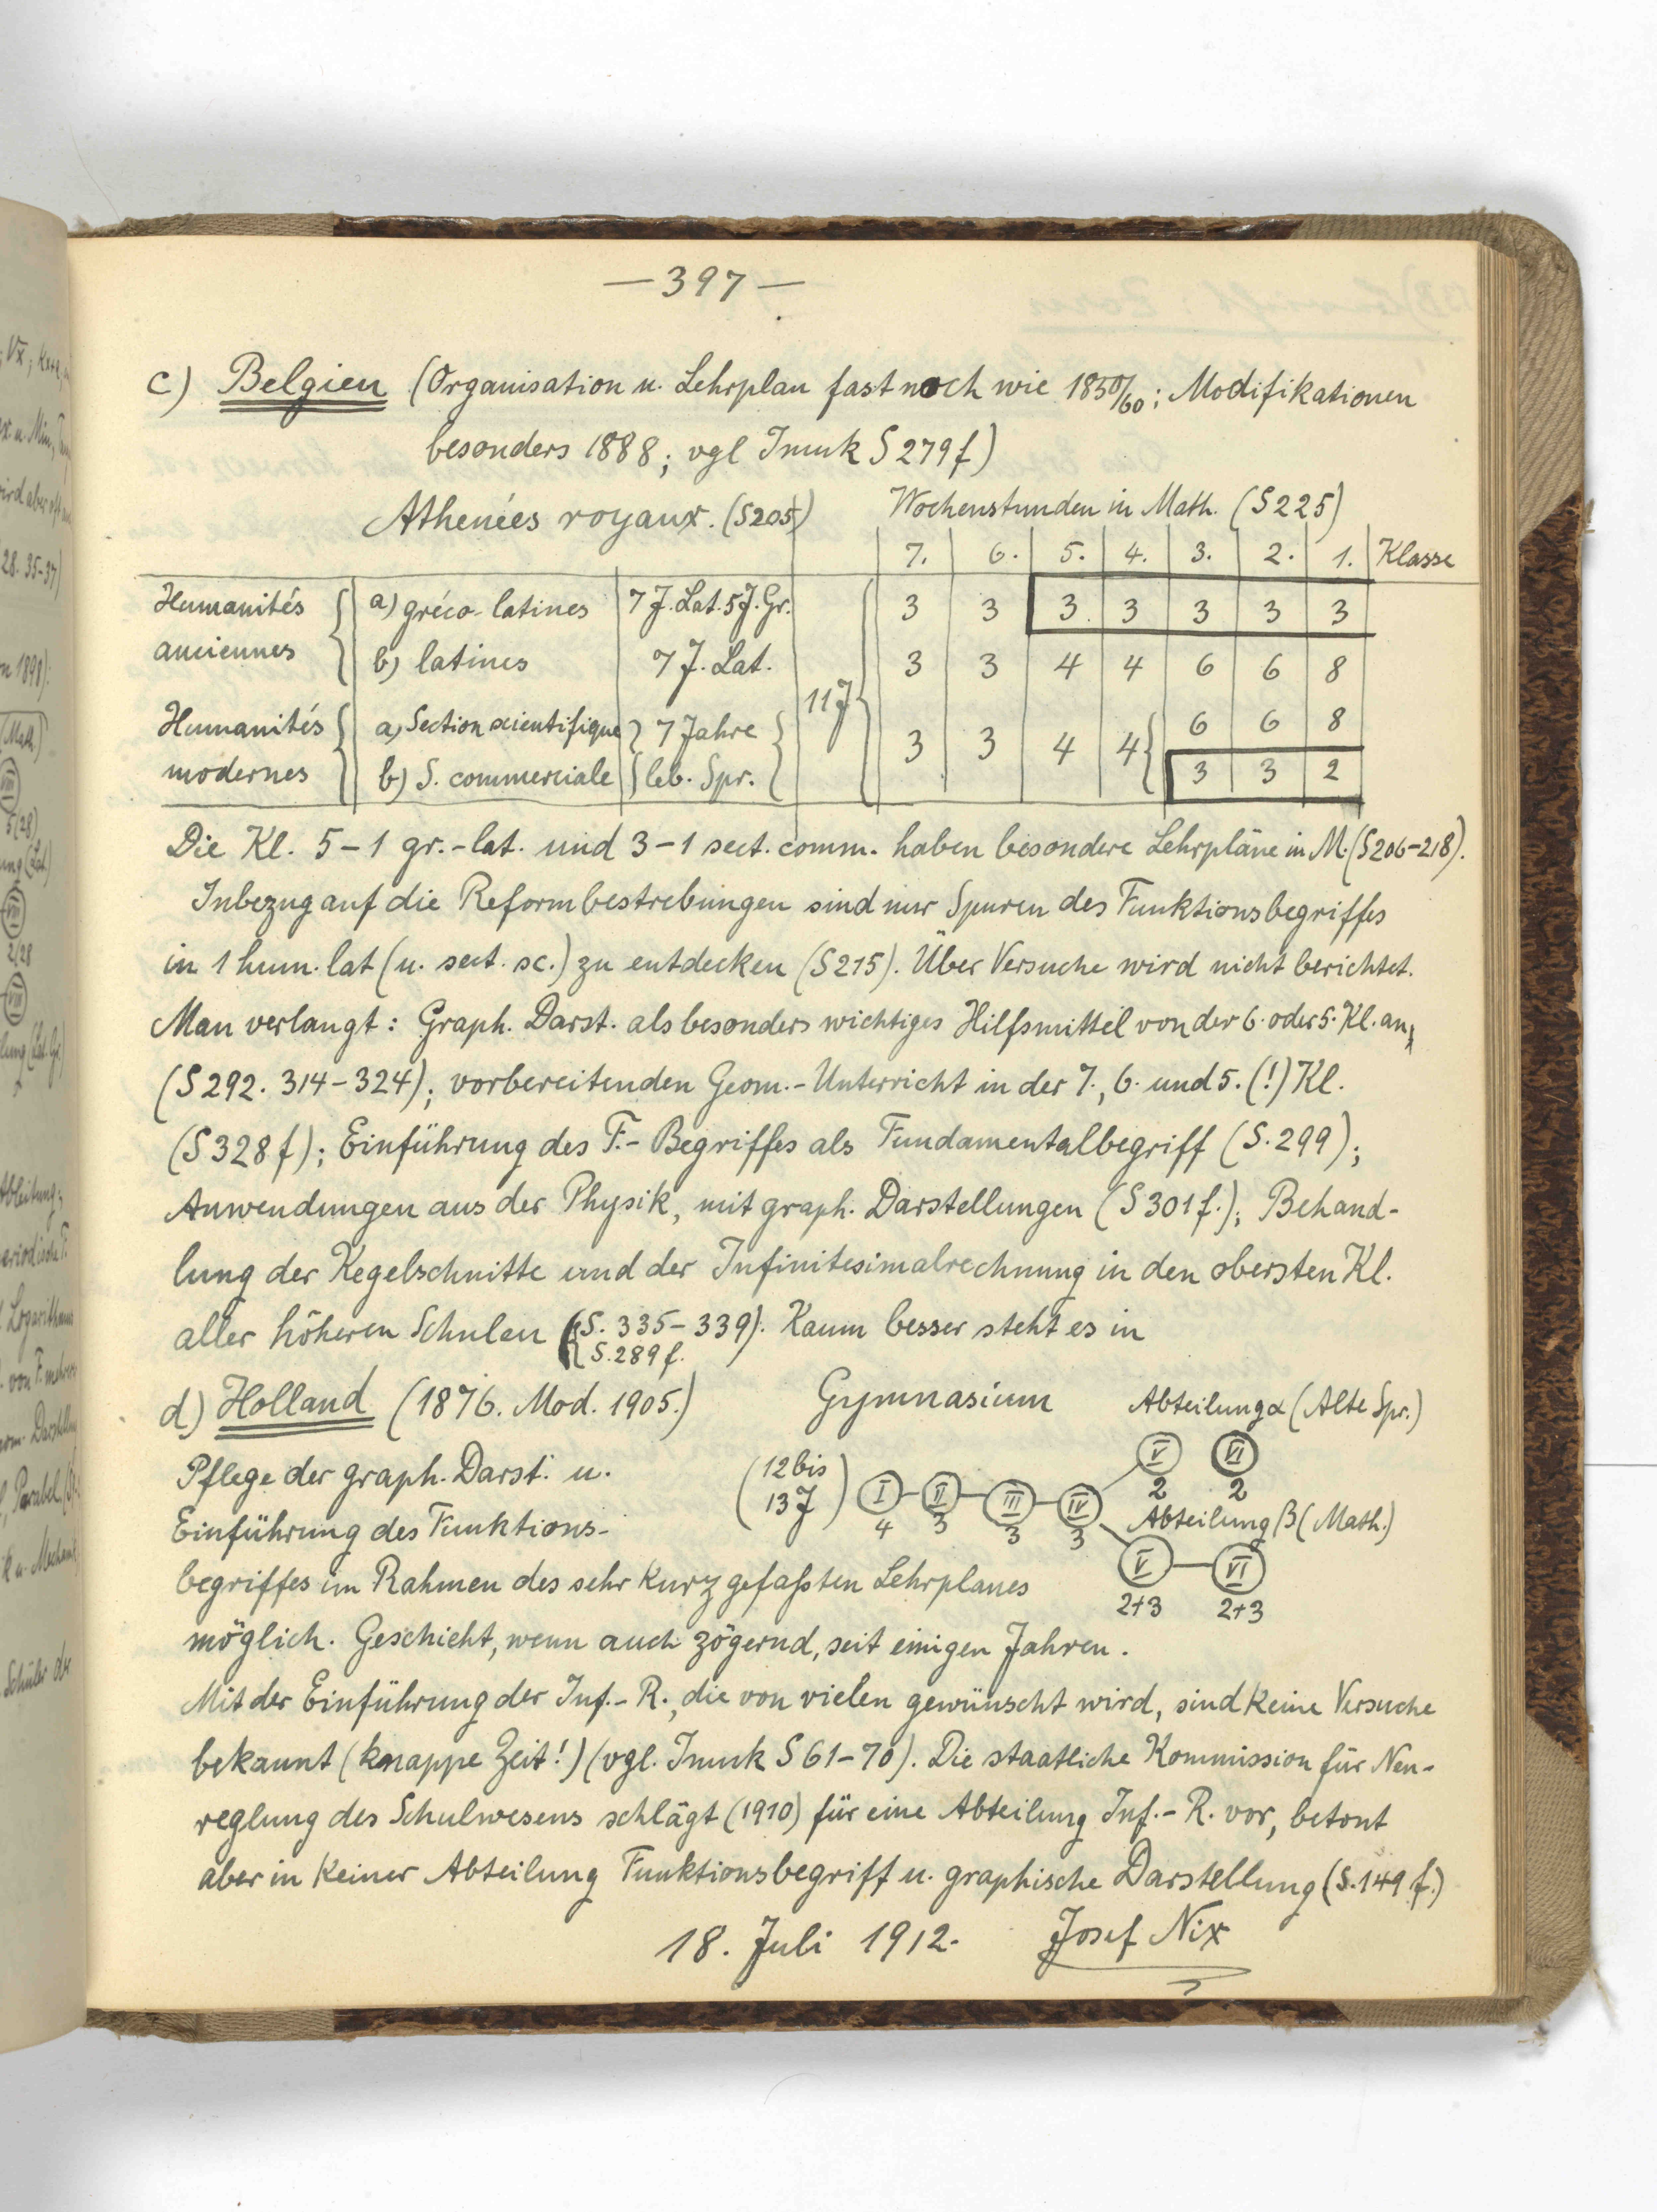 — 397 —
c) Belgien (Organisation u. Lehrplan fast noch wie 1850/60; Modifikationen
besonders 1888; vgl Imuk S 279 f)
Athenées royaux. (S 205) Wochenstunden in Math. (S 225)
7. 6. 5. 4. 3. 2. 1. Klasse
Humanités anciennes
a) gréco-latines 7 J. Lat. 5 J. Gr. 3 3 3 3 3 3 3
b) latines 7 J. Lat. 3 3 4 4 6 6 8
11 J
Humanités modernes
a) Section scientifique 7 Jahre 3 3 4 4 6 6 8
b) S. commerciale leb. Spr. 3 3 2
Die Kl. 5–1 gr.-lat. und 3–1 sect. comm. haben besondere Lehrpläne in M. (S 206–218).
Inbezug auf die Reformbestrebungen sind nur Spuren des Funktionsbegriffes
in 1 hum. lat (u. sect. sc.) zu entdecken (S 215). Über Versuche wird nicht berichtet.
Man verlangt: Graph. Darst. als besonders wichtiges Hilfsmittel von der 6. oder 5. Kl. an,
(S 292. 314–324); vorbereitenden Geom.-Unterricht in der 7., 6. und 5. (!) Kl.
(S 328 f); Einführung des F.-Begriffes als Fundamentalbegriff (S. 299);
Anwendungen aus der Physik, mit graph. Darstellungen (S 301 f.); Behand-
lung der Kegelschnitte und der Infinitesimalrechnung in den obersten Kl.
aller höheren Schulen (S. 335–339). Kaum besser steht es in
S. 289 f.
d) Holland (1876. Mod. 1905.) Gymnasium Abteilung α (Alte Spr.)
Pflege der graph. Darst. u. (12 bis 13 J) I II III IV V VI
4 3 3 3 2 2
Einführung des Funktions- Abteilung β (Math.)
V VI
begriffes im Rahmen des sehr kurz gefaßten Lehrplanes 2+3 2+3
möglich. Geschieht, wenn auch zögernd, seit einigen Jahren.
Mit der Einführung der Inf.-R., die von vielen gewünscht wird, sind keine Versuche
bekannt (knappe Zeit!) (vgl. Imuk S 61–70). Die staatliche Kommission für Neu-
reglung des Schulwesens schlägt (1910) für eine Abteilung Inf.-R. vor, betont
aber in keiner Abteilung Funktionsbegriff u. graphische Darstellung (S. 149 f.)
18. Juli 1912. Josef Nix